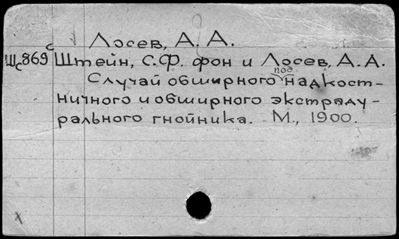 с Лосев, А. А.
Шс869 Штейн, С.Ф. фон и Лосев, А.А.
Случай обширного поднадкост-
ничного и обширного экстраду-
рального гнойника. М., 1900.